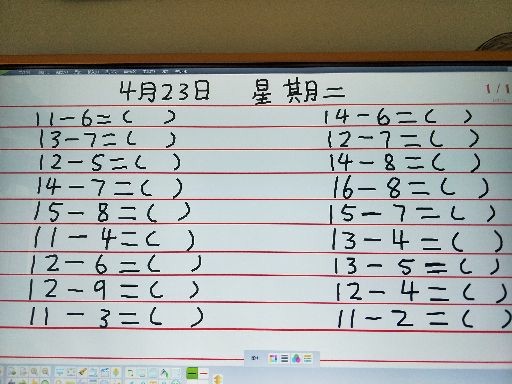 4月23日 星期二
11-6=( ) 14-6=( )
13-7=( ) 12-7=( )
12-5=( ) 14-8=( )
14-7=( ) 16-8=( )
15-8=( ) 15-7=( )
11-4=( ) 13-4=( )
12-6=( ) 13-5=( )
12-9=( ) 12-4=( )
11-3=( ) 11-2=( )
1/1